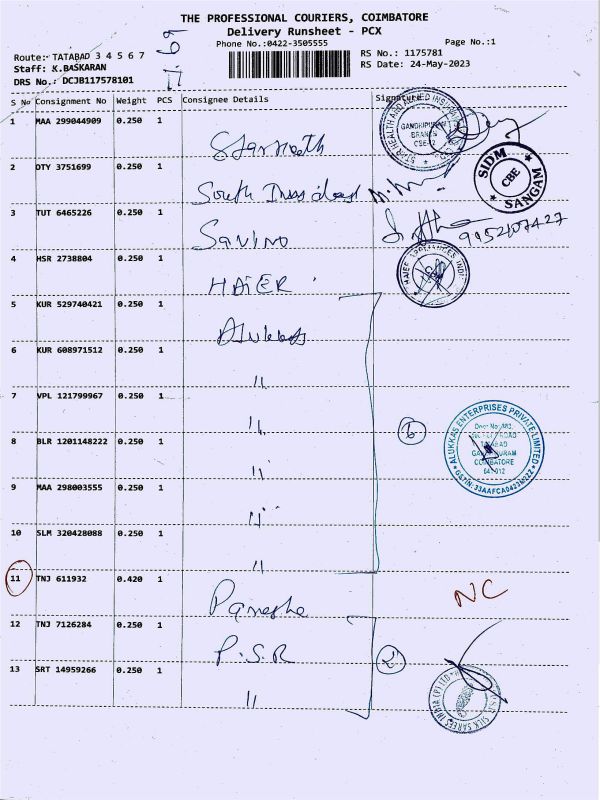 THE PROFESSIONAL COURIERS, COIMBATORE
Delivery Runsheet - PCX
Phone No.:0422-3505555
Page No.:1
Route: TATABAD 3 4 5 6 7
Staff: K.BASKARAN
DRS No.: DCJB117578101
RS No.: 1175781
RS Date: 24-May-2023
S No Consignment No Weight PCS Consignee Details Signature
1 MAA 299044909 0.250 1
2 DTY 3751699 0.250 1 South
3 TUT 6465226 0.250 1 9952107427
4 HSR 2738804 0.250 1 HAIER
5 KUR 529740421 0.250 1
6 KUR 608971512 0.250 1 "
7 VPL 121799967 0.250 1 "
8 BLR 1201148222 0.250 1 "
9 MAA 298003555 0.250 1 "
10 SLM 320428088 0.250 1 "
11 TNJ 611932 0.420 1 NC
12 TNJ 7126284 0.250 1 P.S.R
13 SRT 14959266 0.250 1 "
6
2
STAR HEALTH AND ALLIED
GANDHIPURAM
SIDM
CBE
SANGAM
HAIER APPLIANCES INDIA
ALUKKAS ENTERPRISES PRIVATE LIMITED
TATABAD
COIMBATORE
SILK SAREES INDIA (P) LTD